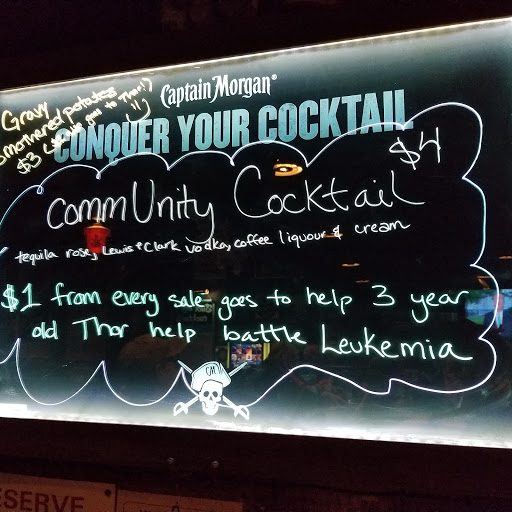 Gravy
smothered potatoes
$3
goes to Thor!)
Captain Morgan®
CONQUER YOUR COCKTAIL
$4
commUnity Cocktail
tequila rose, Lewis + Clark vodka, coffee liquour & cream
$1 from every sale goes to help 3 year
old Thor help battle Leukemia
ESERVE